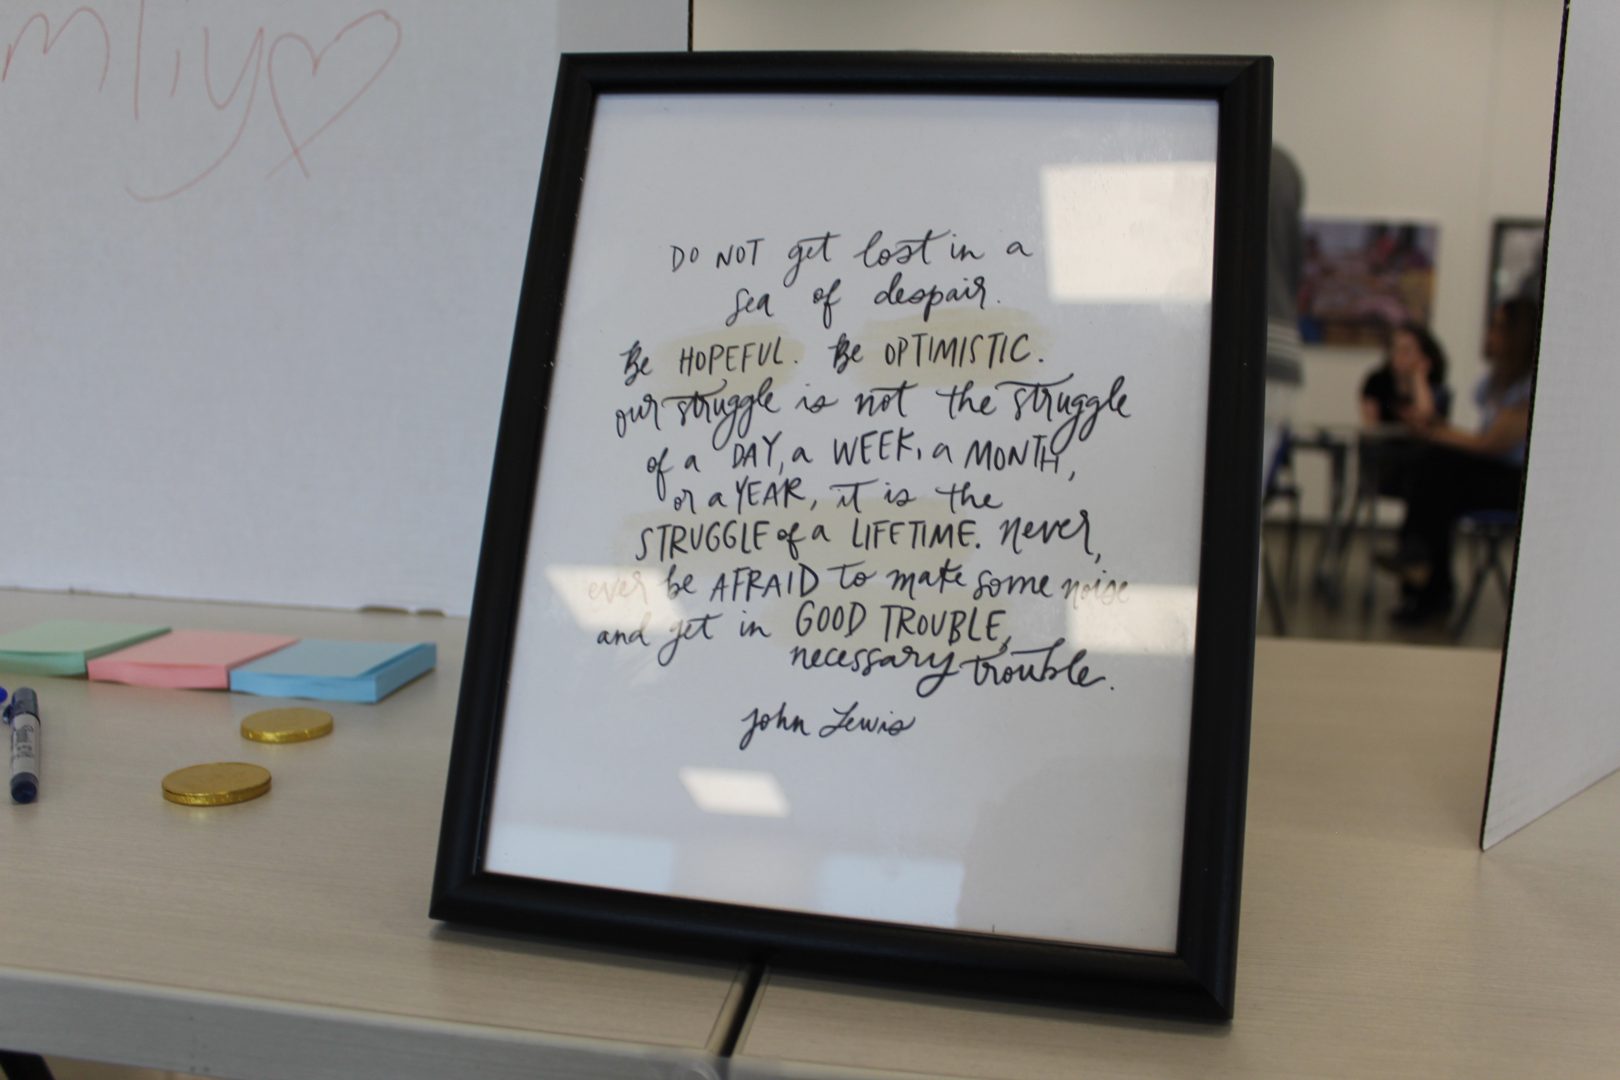 mily
DO NOT get lost in a
sea of despair.
Be HOPEFUL. Be OPTIMISTIC.
our struggle is not the struggle
of a DAY, a WEEK, a MONTH,
or a YEAR, it is the
STRUGGLE of a LIFETIME. Never,
ever be AFRAID to make some noise
and get in GOOD TROUBLE,
necessary trouble.
John Lewis